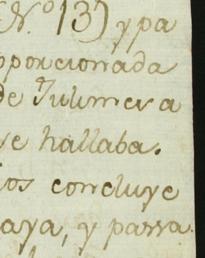 (N.º 13) y pa
oporcionada
de Julimes a
se hallaba.
ios concluye
aya, y passa